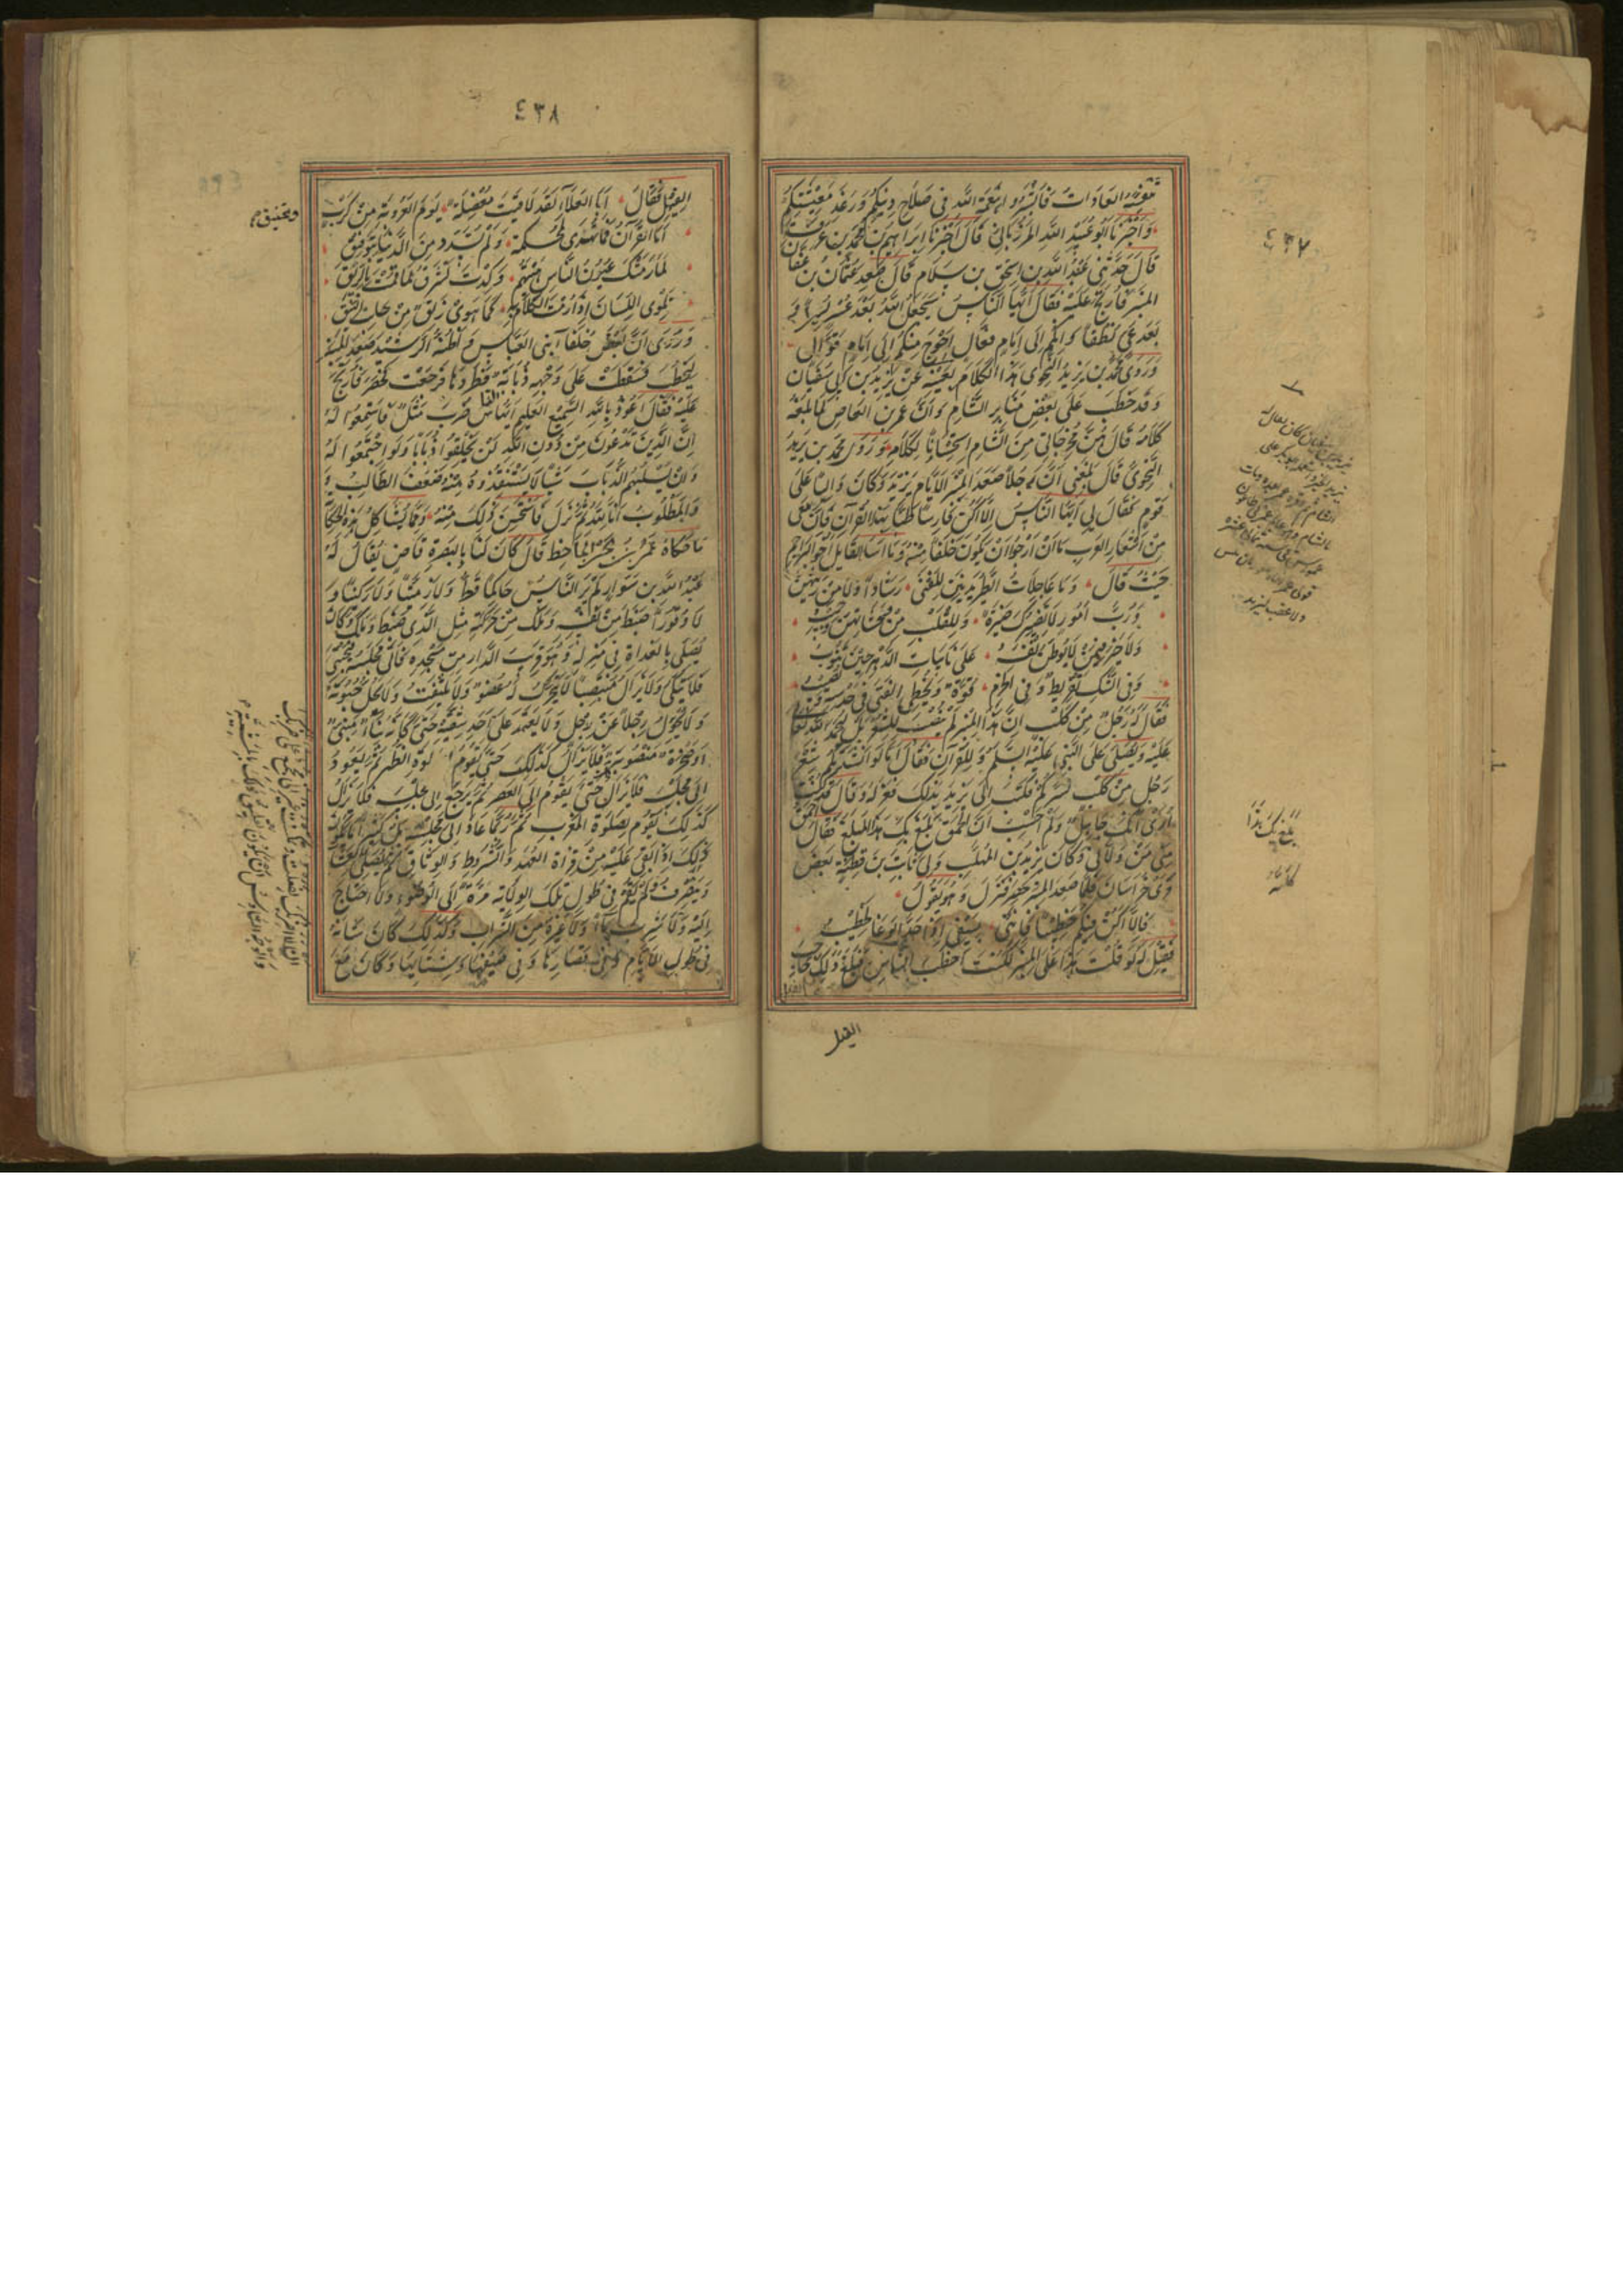 ٤٣٧
معرفة العادات فأبشروا بنعمة الله في صلاح دينكم ورغد معيشتكم
وأخبرنا أبو عبيد الله المرزباني قال أخبرنا إبراهيم بن محمد بن عرفة
قال حدثني عبد الله بن إسحق بن سلام قال صعد عثمان بن عفان
المنبر فأرتج عليه فقال أيها الناس سيجعل الله بعد عسر يسرا و
بعد عي نطقا وانكم إلى إمام فعال أحوج منكم إلى إمام قوال
وروى محمد بن يزيد النحوي هذا الكلام بعينه عن يزيد بن أبي سفيان
وقد خطب على بعض منابر الشام وأن عمرو بن العاص لما بلغه
كلامه قال هن مخرجاتي من الشام استحسانا لكلامه وروى محمد بن يزيد
النحوي قال بلغني أن رجلا صعد المنبر أيام يزيد وكان واليا على
قوم فقال لي أيها الناس إلا أكن فارسا طبا بهذا القرآن فإن معي
من أشعار العرب ما أن أرجوا أن يكون خلفا منه وما أسا القايل أخو البراجم
حيث قال وما عاجلات الطير يدنين للفتى رشادا ولا من ريثهن يخيب
ورب أمور لا تضيرك ضيرة وللقلب من مخشاتهن وجيب
ولا خير فيمن لا يوطن نفسه على نايبات الدهر حين تنوب
وفي الشك تفريط وفي الحزم قوة ويخطي الفتى في حدسه ويصيب
فقال له رجل من كلب إن هذا المنبر لم ينصب للشعر بل ليحمد الله تعالى
عليه ويصلى على النبي عليه السلم وللقرآن فقال أما لو أنشدتكم شعر
رجل من كلب لسركم فكتب إلى يزيد بذلك فعزله وقال قد كنت
أراك جاهلا ولم أحسب أن الحمق بلغ بك هذا المبلغ فقال له أحمق
مني من ولاني وكان يزيد بن المهلب ولى ثابت بن قطنة بعض
قرى خراسان فلما صعد المنبر حصر فنزل وهو يقول
فإلا أكن فيكم خطيبا فإنني بسيفي إذا جد الوغا لخطيب
فقيل له لو قلت هذا على المنبر لكنت أخطب الناس فبلغ ذلك حاجب
الفيل
بلغ بك هذا
٤٣٨
الفيل فقال أبا العلاء لقد لاقيت معضلة يوم العروبة من كرب
وتخنيق
أما القرآن فما تهدى لمحكمة ولم تسدد من الدنيا بتوفيق
لما رمتك عيون الناس هبتهم وكدت تشرق لما قمت بالريق
تلوي اللسان إذا رمت الكلام به كما هوى زلق من جانب النيق
وروى أن بعض خلفا بني العباس وأظنه الرشيد صعد المنبر
ليخطب فسقطت على وجهه ذبابة فطردها فرجعت فحصر فأرتج
عليه فقال أعوذ بالله السميع العليم يا أيها الناس ضرب مثل فاستمعوا له
إن الذين تدعون من دون الله لن يخلقوا ذبابا ولو اجتمعوا له
وإن يسلبهم الذباب شيئا لا يستنقذوه منه ضعف الطالب و
المطلوب ثم نزل فاستحسن ذلك منه ومما يشاكل هذه الحكاية
ما حكاه عمرو بن بحر الجاحظ قال كان لنا بالبصرة قاض يقال له
عبد الله بن سوار لم ير الناس حاكما قط ولا زميتا ولا ركينا و
لا وقورا ضبط من نفسه وملك من حركته مثل الذي ضبط وملك وكان
يصلي بالغداة في منزله وهو قريب الدار من مسجده فيأتي مجلسه فيحتبي
فلا يتكي ولا يزال منتصبا لا يتحرك له عضو ولا يلتفت ولا يحل حبوته
ولا يحول رجلا عن رجل ولا يعتمد على أحد شقيه حتى كأنه بناء مبني
أو صخرة منصوبة فلا يزال كذلك حتى يقوم لصلوة الظهر ثم يعود
إلى مجلسه فلا يزال حتى يقوم إلى العصر ثم يرجع إلى مجلسه فلا يزال
كذلك حتى يقوم بصلوة المغرب ثم ربما عاد إلى مجلسه بل كثيرا ما يكون
ذلك إذا بقي عليه من قراة العهد والشروط والوثايق ثم يصلي العشا
وينصرف لم يقم في طول تلك الولاية مرة إلى الوضوء ولا احتاج
إليه ولا شرب ماء ولا غيره من الشراب وكذلك كان شأنه
في طول الأيام وفي قصارها وفي صيفها وشتايها وكان مع